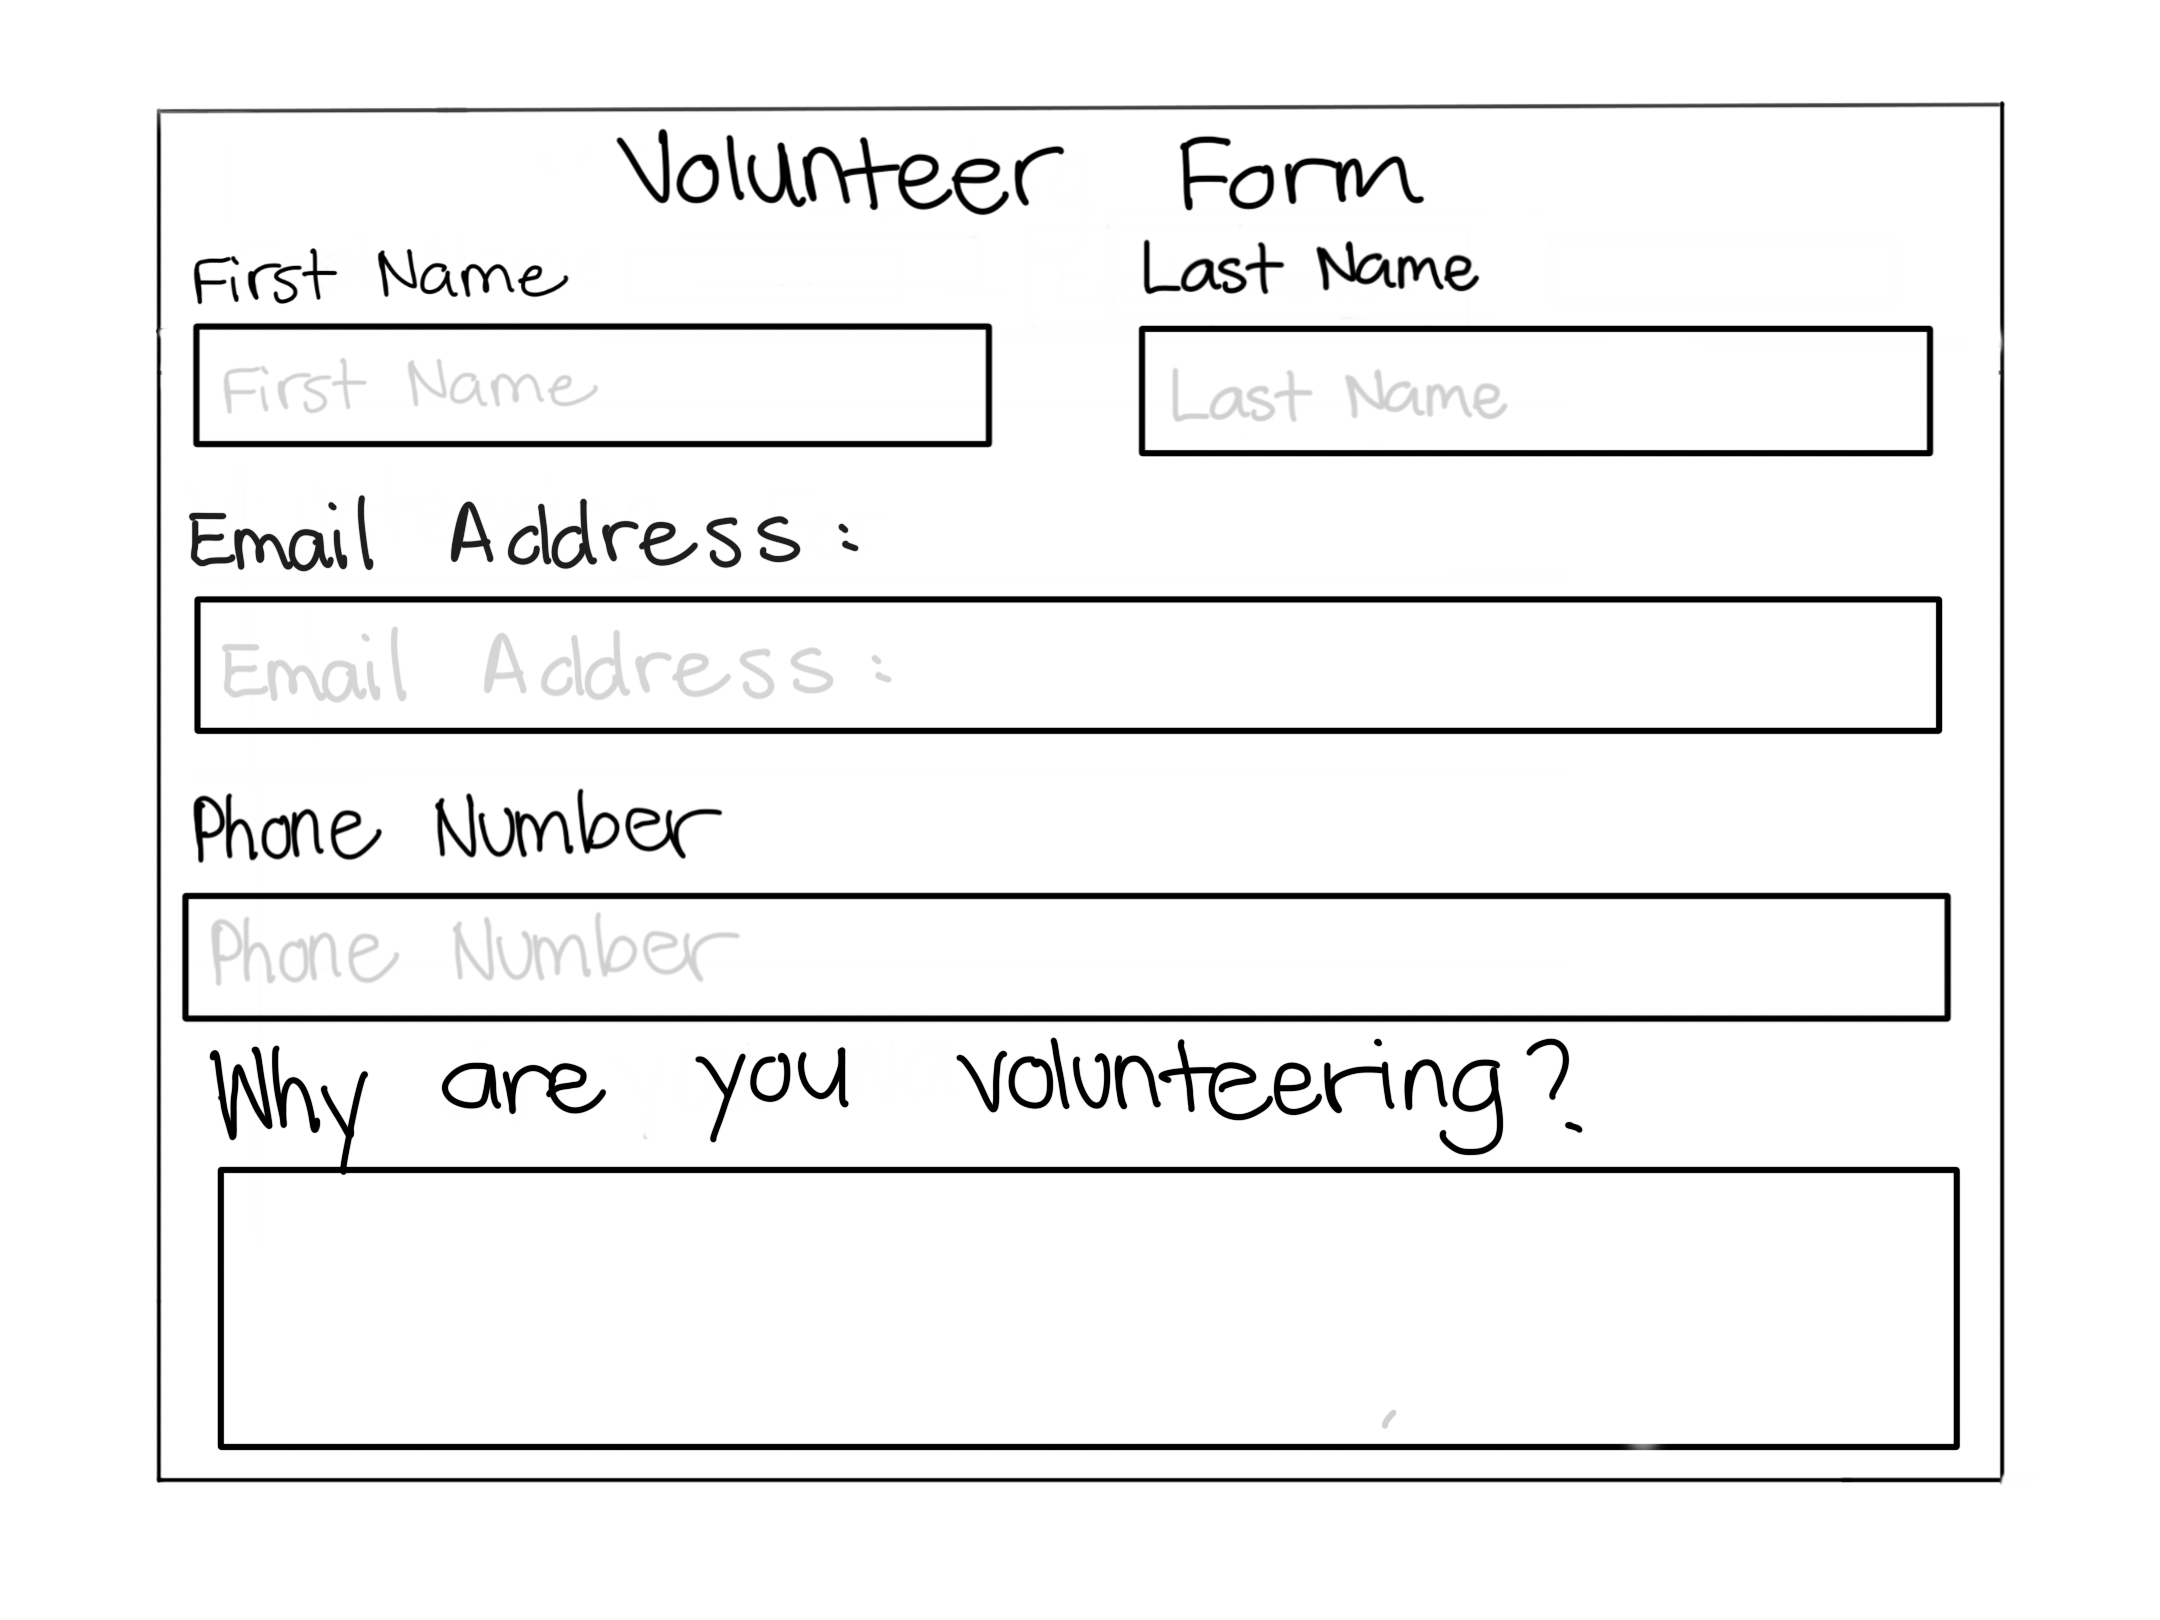 Volunteer Form
First Name
Last Name
First Name
Last Name
Email Address:
Email Address:
Phone Number
Phone Number
Why are you volunteering?